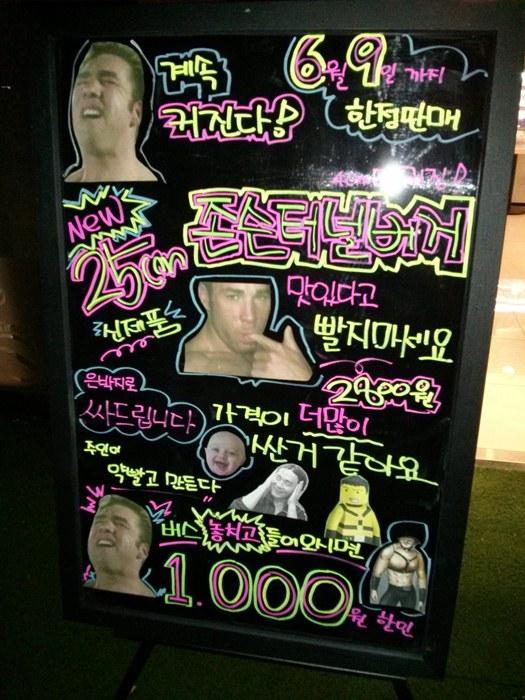 계속
커진다!
6월 9일 까지
한정판매
New
25cm
존슨터널버거
신제품
맛있다고
빨지마세요
2900원
은박지로
싸드립니다
가격이 더많이
싼거 같아요
주인이
약빨고 만든다
버스 놓치고 들어오시면
1.000원 할인